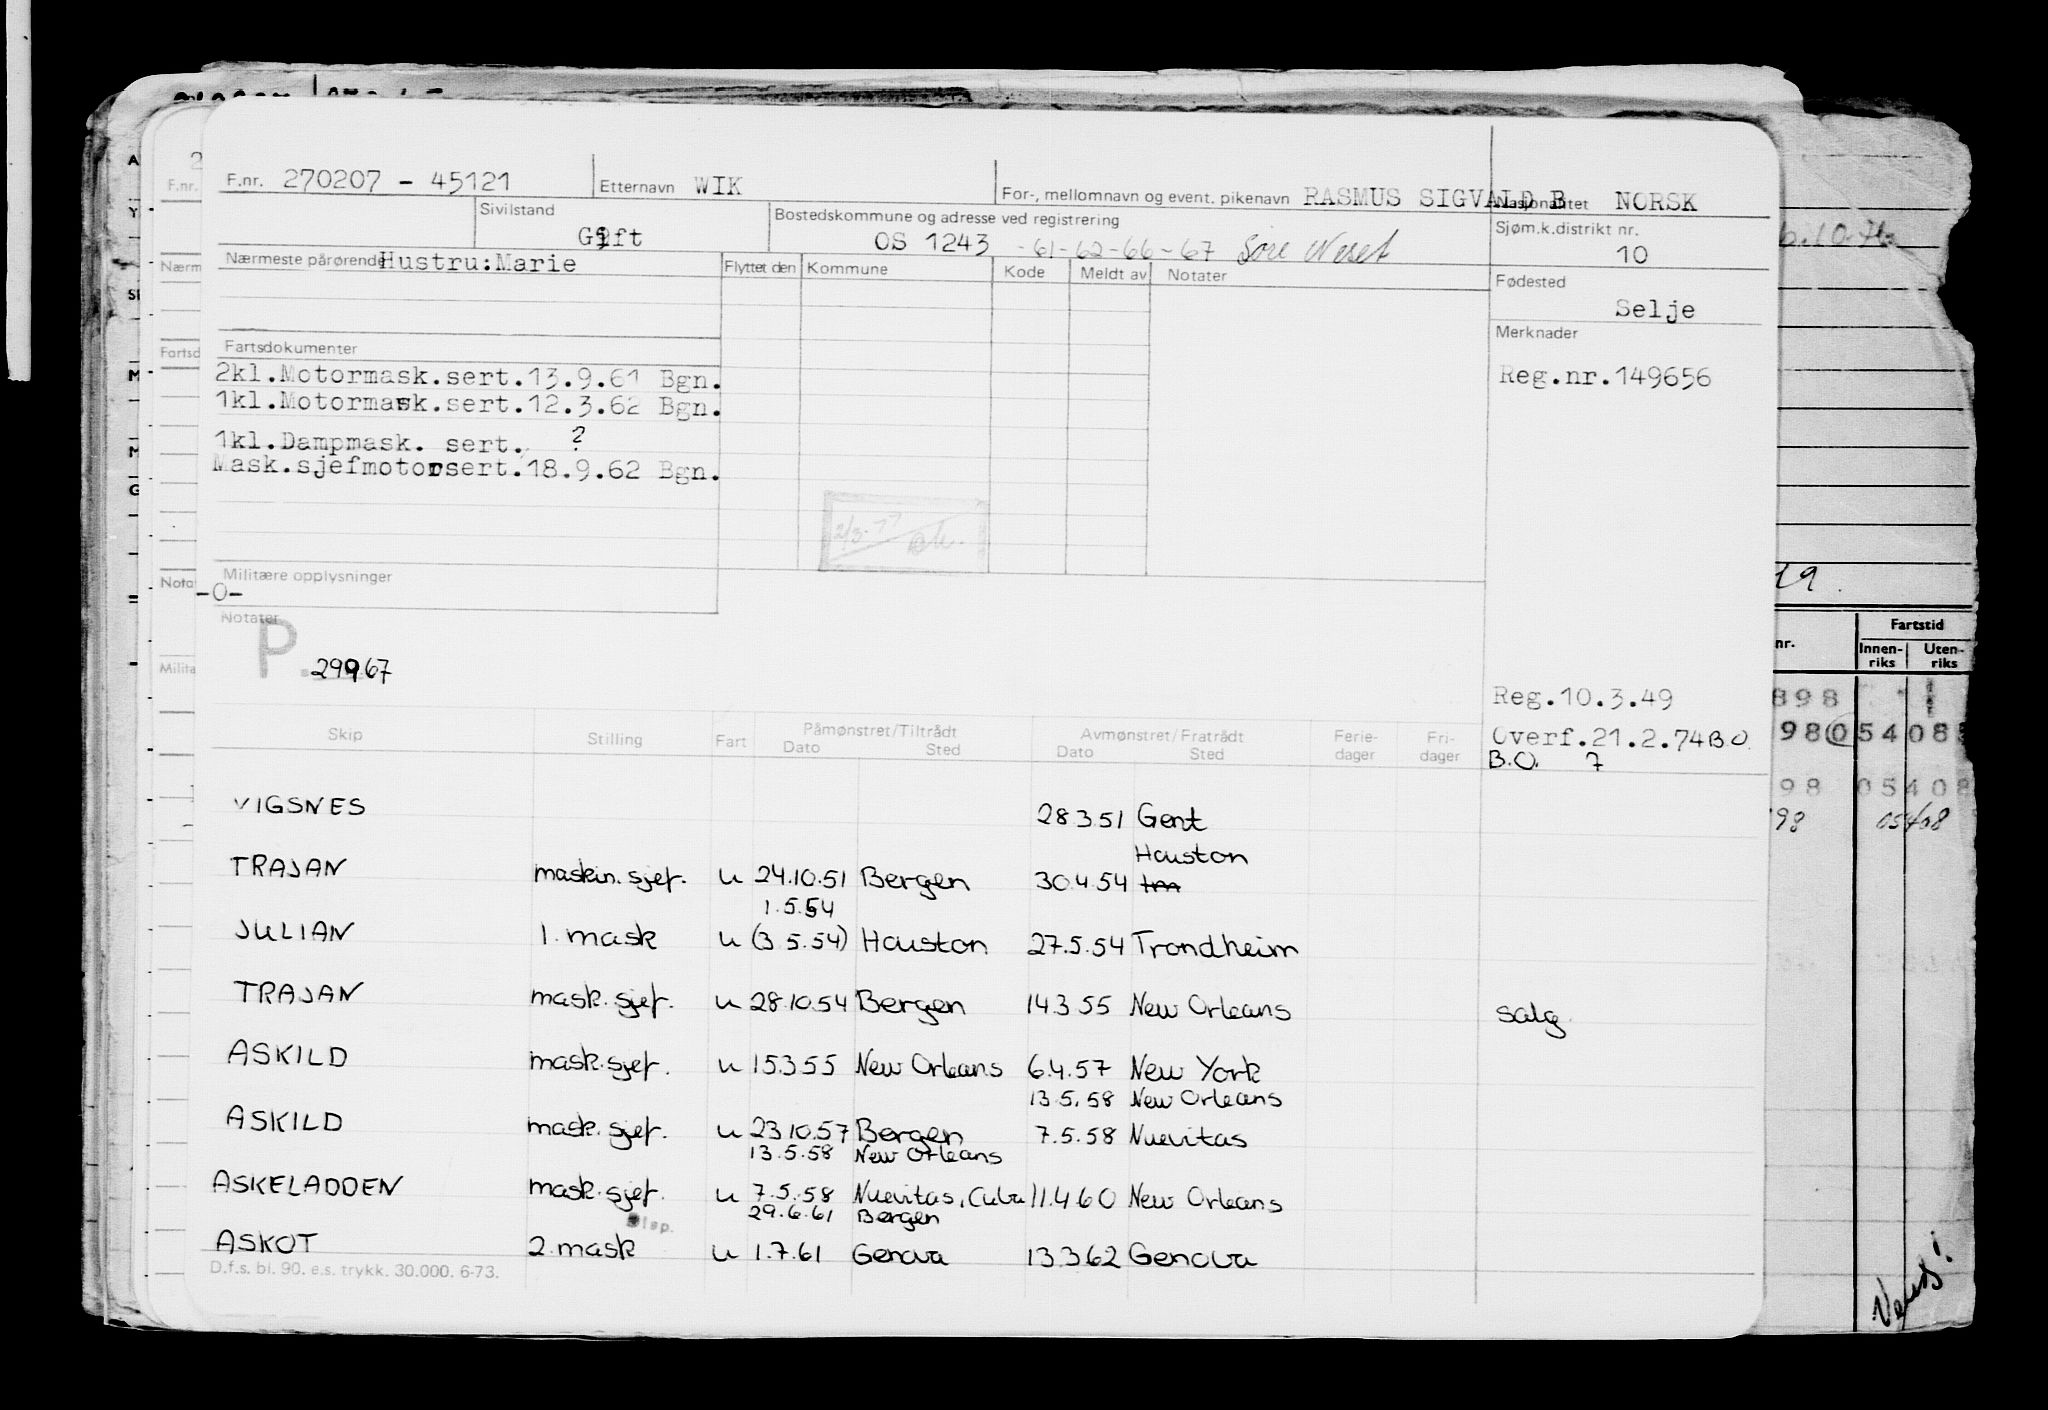 F.nr. 270207 - 45121 Etternavn WIK For-, mellomnavn og event. pikenavn RASMUS SIGVALD B Nasjonalitet NORSK
Sivilstand Gift Bostedskommune og adresse ved registrering OS 1243 -61-62-66-67 Søre Neset Sjøm.k.distrikt nr. 10
Nærmeste pårørende Hustru:Marie Flyttet den Kommune Kode Meldt av Notater Fødested
Selje
Merknader
Fartsdokumenter
2kl.Motormask.sert.13.9.61 Bgn. Reg.nr.149656
1kl.Motormask.sert.12.3.62 Bgn.
1kl.Dampmask. sert. ?
Mask.sjefmotorsert.18.9.62 Bgn.
2/3-77
Militære opplysninger
-0-
Notater
P. 29967
Reg.10.3.49
Overf.21.2.74 B.O.
B.O. 7
Skip Stilling Fart Påmønstret/Tiltrådt Dato Sted Avmønstret/Fratrådt Dato Sted Ferie-dager Fri-dager
VIGSNES 28351 Gent
Houston
TRAJAN maskin. sjef. u 24.10.51 Bergen 30.4.54 tm
1.5.54
JULIAN 1. mask u (3.5.54) Houston 27.5.54 Trondheim
TRAJAN mask. sjef. u 28.10.54 Bergen 14.3 55 New Orleans salg.
ASKILD mask. sjef. u 15355 New Orleans 6.4.57 New York
13.5.58 New Orleans
ASKILD mask. sjef. u 23 10.57 Bergen 7.5.58 Nuevitas
13.5.58 New Orleans
ASKELADDEN mask. sjef. u 7.5.58 Nuevitas, Cuba 11.4 60 New Orleans
29.6.61 Bergen
Disp.
ASKOT 2. mask u 1.7.61 Genova 13.3 62 Genova
D.f.s. bl. 90. e.s. trykk. 30.000. 6-73.
F.nr.
Nærm
Fartsd
Nota
Milita
19.
nr. Fartstid
Innen-riks Uten-riks
898
980 54 08
98 05408
98 05408
Vend!